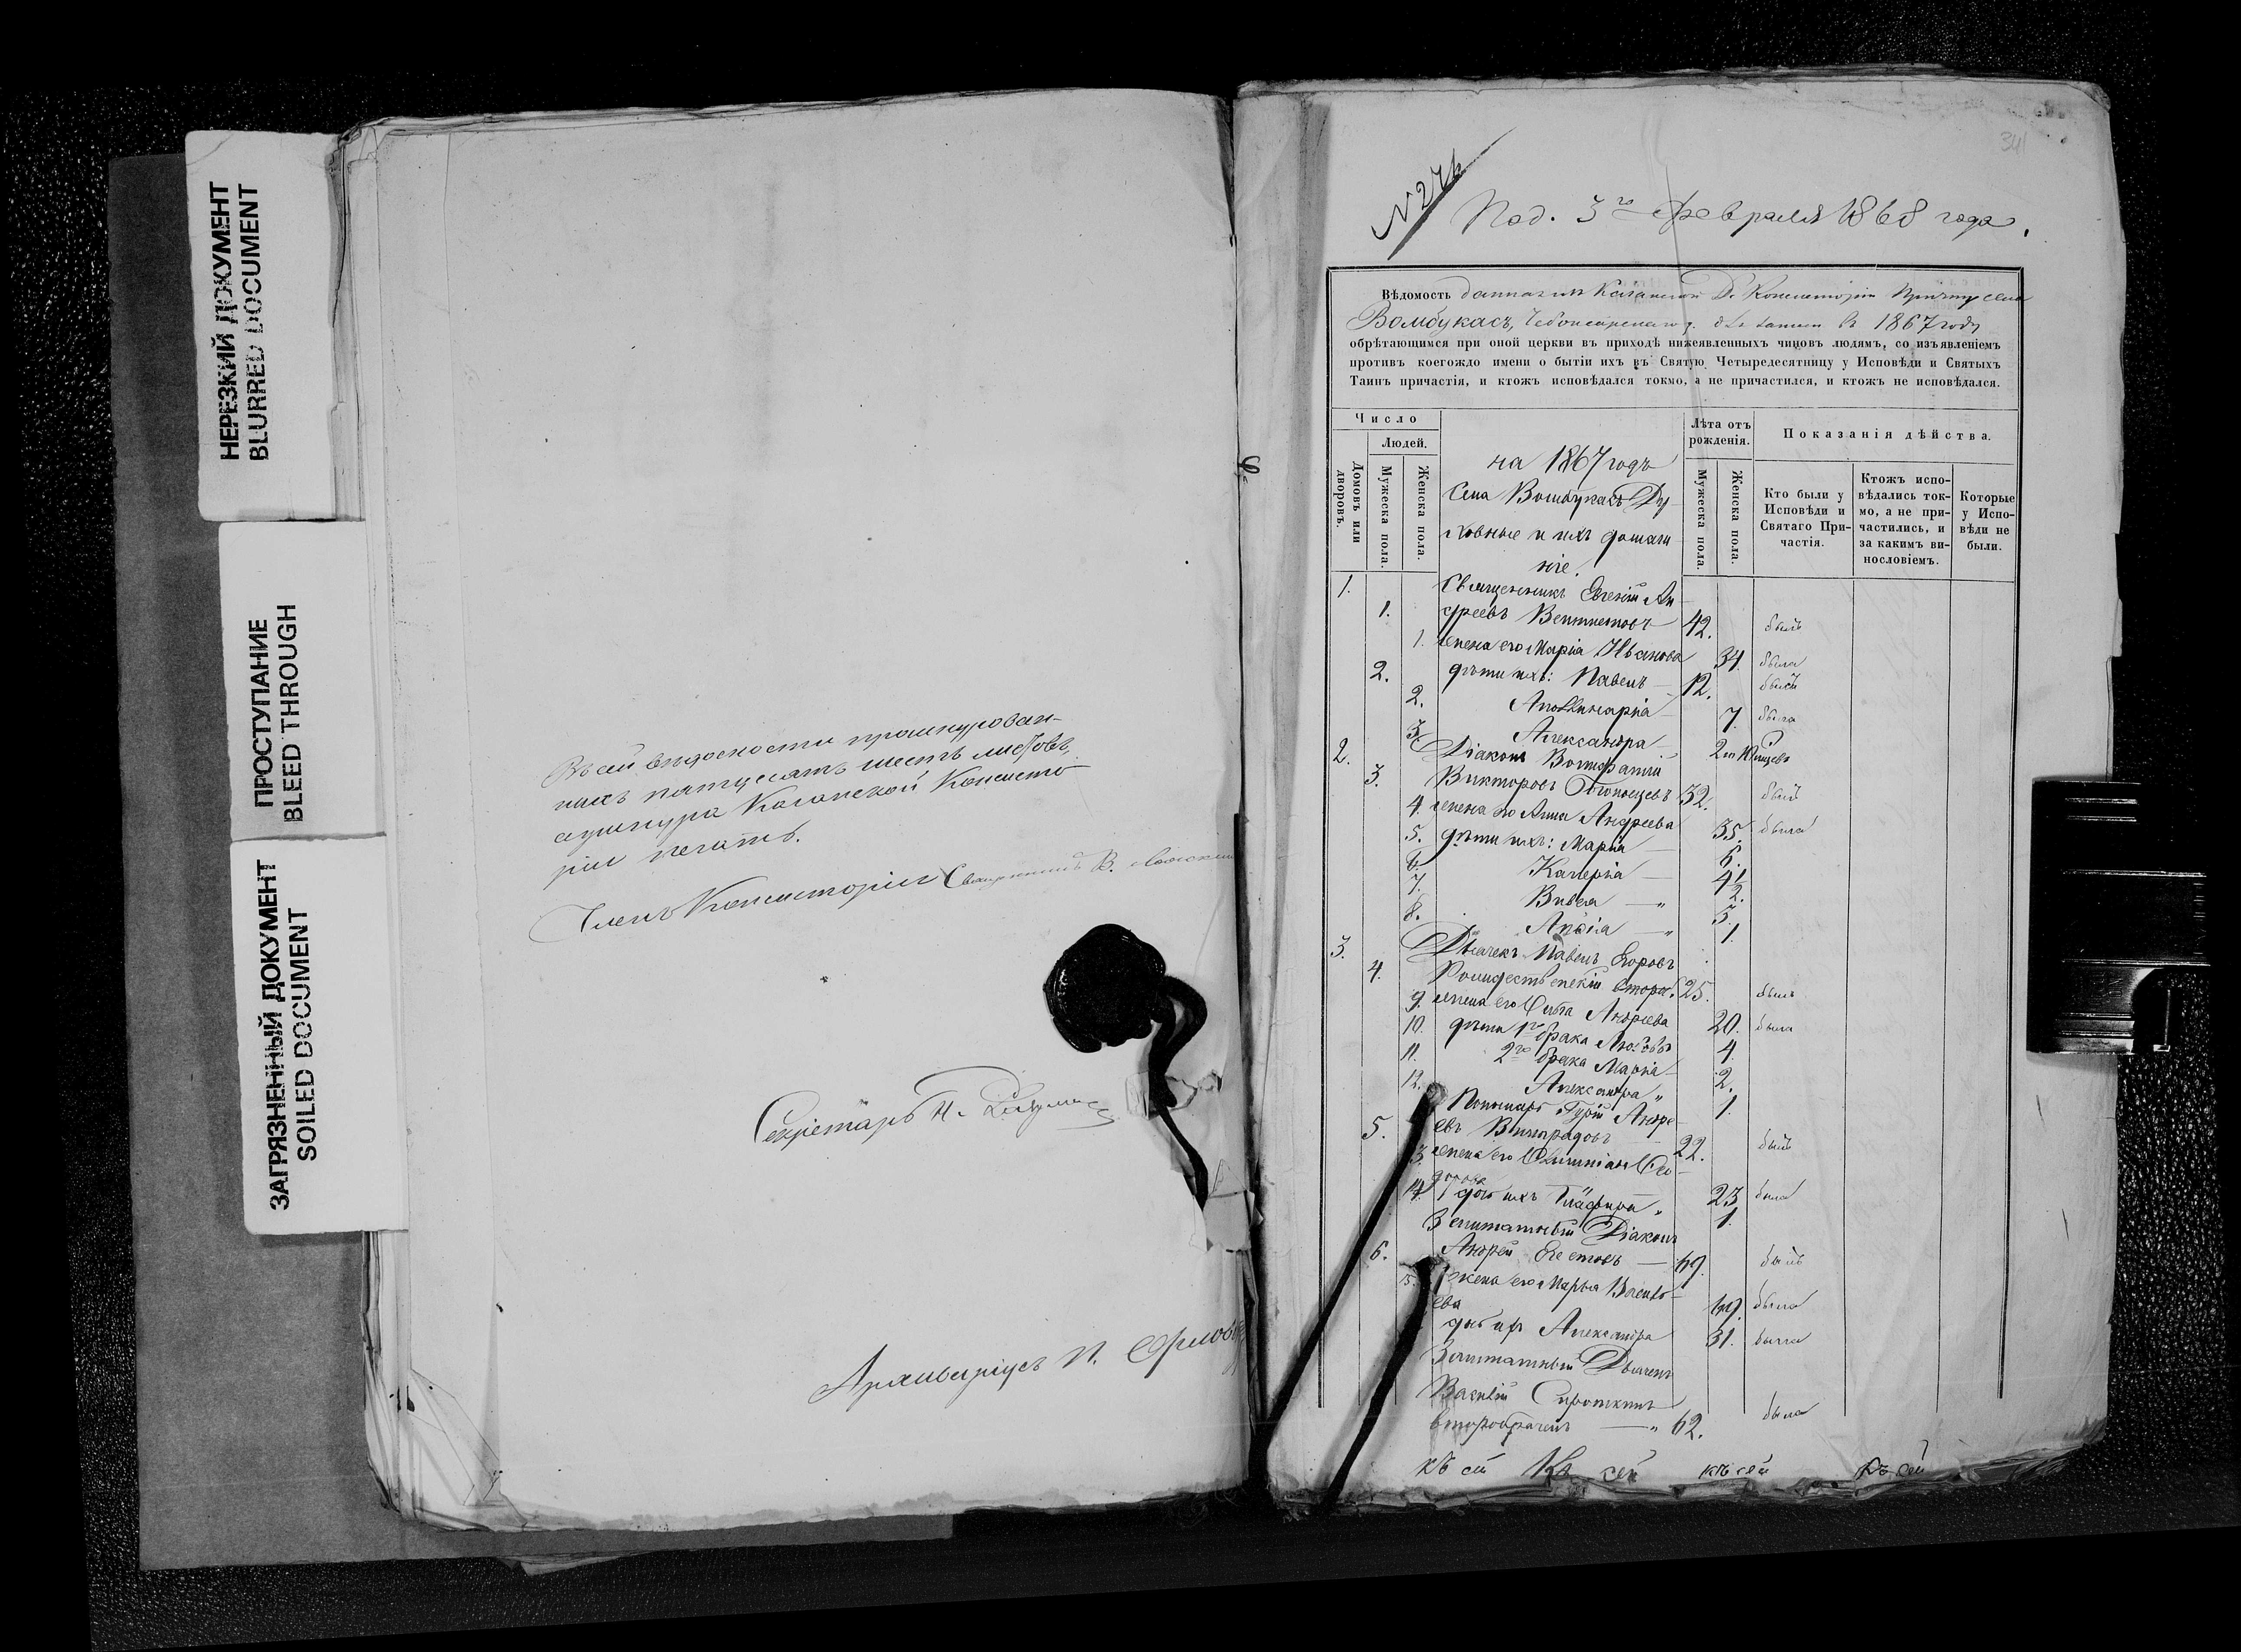 НЕРЕЗКИЙ ДОКУМЕНТ
BLURRED DOCUMENT
ПРОСТУПАНИЕ
BLEED THROUGH
ЗАГРЯЗНЕННЫЙ ДОКУМЕНТ
SOILED DOCUMENT
Въ сей вѣдомости прошнурован-
ныхъ пятдесятъ шесть листовъ,
а у шнура Казанской Консисто
ріи печать.
Членъ Консисторіи Священникъ В.
Секретарь Н.
Архиваріусъ П. Орловъ
34
Под. 3го Февраля 1868 года.
Вѣдомость данная изъ Казанской Д. Консисторіи Причту села
Вомбукасъ, Чебоксарскаго у. для записи въ 1867 году
обрѣтающимся при оной церкви въ приходѣ нижеявленныхъ чиновъ людямъ, со изъявленіемъ
противъ коегождо имени о бытіи ихъ въ Святую Четыредесятницу у Исповѣди и Святыхъ
Таинъ причастія, и ктожъ исповѣдался токмо, а не причастился, и ктожъ не исповѣдался.
Число
Людей.
Домовъ или дворовъ.
Мужеска пола.
Женска пола.
Лѣта отъ рожденія.
Мужеска пола.
Женска пола.
Показанія дѣйства.
Кто были у Исповѣди и Святаго При-частія.
Ктожъ испо-вѣдались ток-мо, а не при-частились, и за какимъ ви-нословіемъ.
Которые у Испо-вѣди не были.
на 1867 годъ
Села Вомбукасъ Ду
ховные и ихъ домаш
ніе.
1. Священникъ Евгеній Ан
1. дреевъ 42. былъ
1. жена его Марія Иванова 34. была
2. дѣти ихъ: Павелъ 12. былъ
2. Аполлинарія 7. была
3. Александра 2
2. Діаконъ Вонифатій
3. Викторовъ 32. былъ
4. жена его Анна Андреева 35. была
5. дѣти ихъ: Марія 6.
6. Валерія 4½
7.
8. 1.
3. Дьячекъ Павелъ Егоровъ
4. Рождественскій 25. былъ
9. жена его Ольга Андреева 20. была
10. дѣти 1го брака Любовь 4.
11. 2го брака Марія 2.
12. Александра 1.
Пономарь Гурій Андре
5. евъ Виноградовъ 22. былъ
жена его Ѳео-
дорова 23 была
14. дочь ихъ Глафира 1.
Заштатный Діаконъ
6. Андрей 69. былъ
15. жена его Марья Василь-
ева 69. была
дочь ихъ Александра 31. была
Заштатный Дьячекъ
Василій Сироткинъ
второбрачен 62. была
къ сей Къ сей къ сей Къ сей